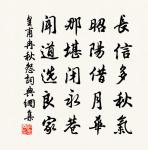 長信多秋氣
昭陽借月華
那堪閉永巷
聞道選良家
皇甫冉秋怨詞典網集